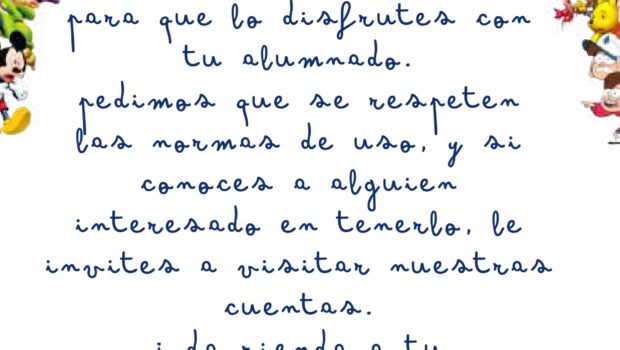 para que lo disfrutes con
tu alumnado.
pedimos que se respeten
las normas de uso, y si
conoces a alguien
interesado en tenerlo, le
invites a visitar nuestras
cuentas.